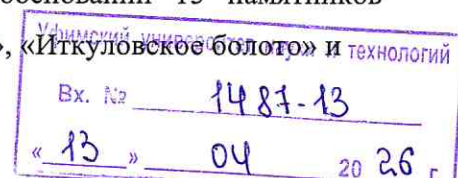 обосновании 13 памятников
», «Иткуловское болото» и
Уфимский университет науки и технологий
Вх. № 1487-13
« 13 » 04 20 26 г.